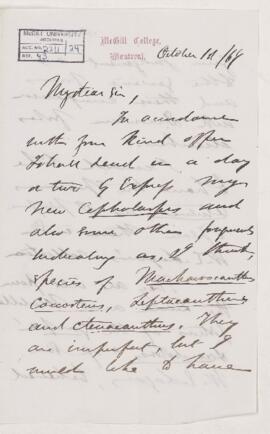 McGILL UNIVERSITY
ARCHIVES
ACC. NO. 2211/24
REF. 43
McGill College,
Montreal,
October 1st/68
My dear Sir,
In accordance
with your kind offer
I shall send in a day
or two by Express my
new Cephalaspis and
also some other fragments
indicating as, I think,
species of Machairacanthus
Coccosteus, Leptacanthus
and Ctenacanthus. They
are imperfect, but I
would like to have